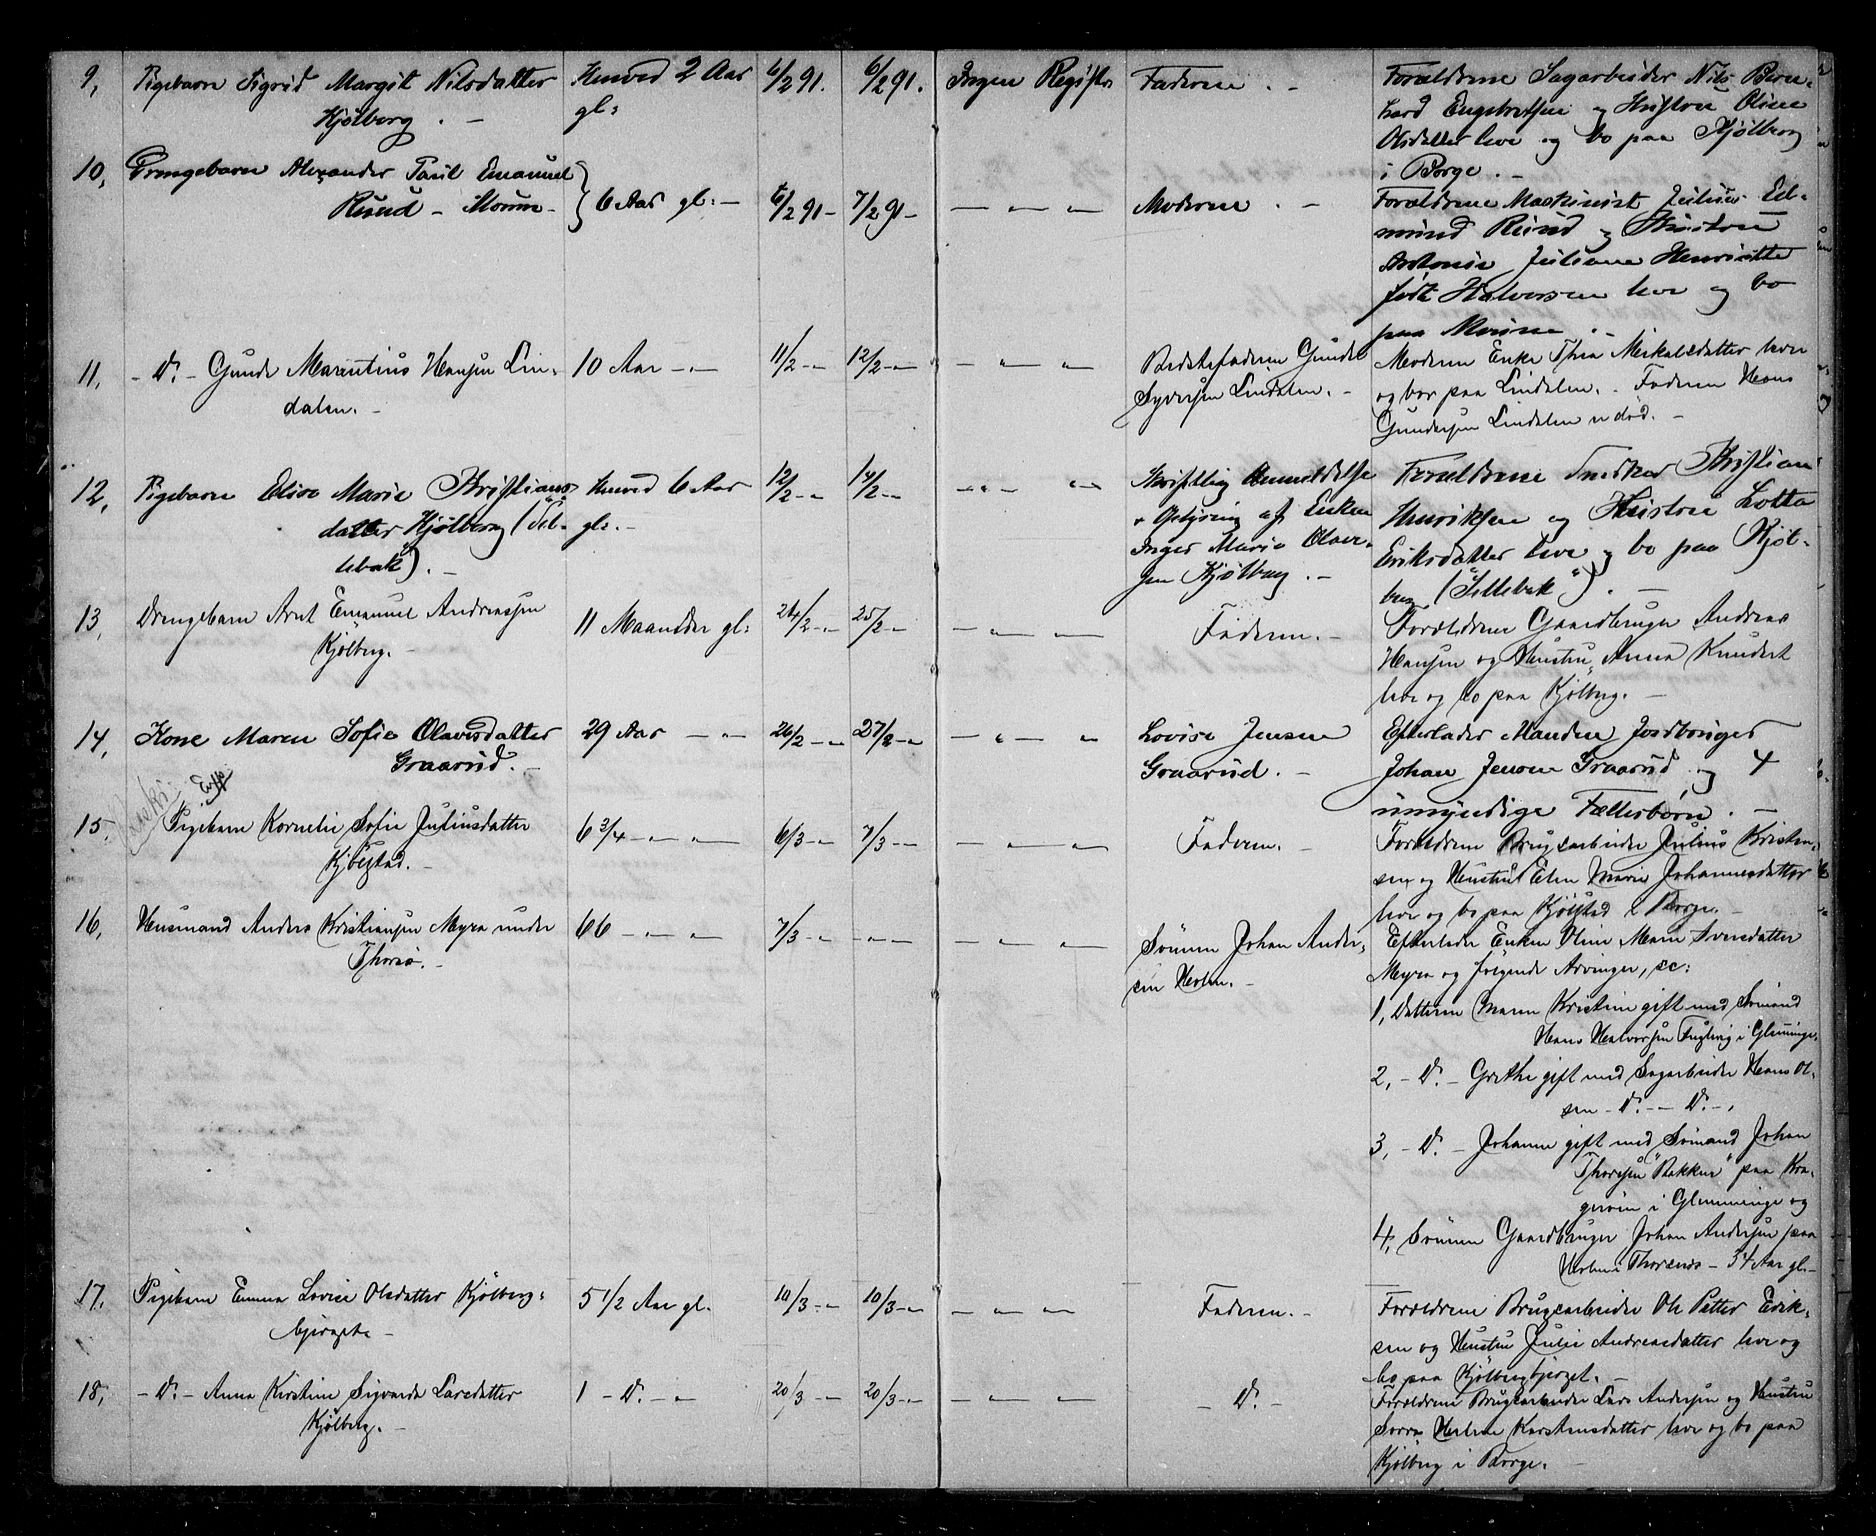 9, Pigebarn Sigrid Margit Nilsdatter Henved 2 Aar 6/2 91. 6/2 91. Ingen Registr. Faderen. - Forældrene Sagarbeider Nils Bern-
Kjølberg. - gl: hard Engebretsen og Hustru Oline
Olsdatter leve og bo paa Kjølberg
i Borge. -
10, Drengebarn Alexander Paul Emanuel
Ruud - Moum - 6 Aar gl: - 6/2 91 - 7/2 91 - — " — Moderen. - Forældrene Maskinist Julius Ed-
mund Ruud og Hustru
Antonie Juliane Henriette
født Halvorsen leve og bo
paa Moum. -
11, - Do. - Gunder Marentius Hansen Lin- 10 Aar - " - 11/2 - " 12/2 - " - " - " Bedstefaderen Gunder Moderen Enke Thea Mikalsdatter lever
dalen. - Syversen Lindalen. - og bor paa Lindalen. - Faderen Hans
Gundersen Lindalen er død. -
12, Pigebarn Elise Marie Kristians- Henved 6 Aar 12/2 - " 14/2 - " - " - " Skriftlig Anmeldelse Forældrene Snedker Kristian
datter Kjølberg (Sil- gl: - af Enken Henriksen og Hustru Lotta
lebak). - Inger Marie Olav- Eriksdatter leve og bo paa Kjøl-
sen Kjølberg. - berg ("Sillebak"). -
13, Drengebarn Arnt Emanuel Andreassen 11 Maaneder gl: 24/2 - " 25/2 - " - " - Faderen. - Forældrene Gaardbruger Andreas
Kjølberg. - Hansen og Hustru Anna
leve og bo paa Kjølberg. -
14, Kone Maren Sofie Olavesdatter 29 Aar - " - 26/2 - " 27/2 - " - " - " Lovise Jensen Efterlader Manden Jordbruger
Graarud. - Graarud. - Johan Jensen Graarud og 4
umyndige Fællesbørn. -
15, Pigebarn Kornelie Sofie Juliusdatter 6 3/4 - " - " 6/3 - " 7/3 - " - " - Faderen. - Forældrene Brugsarbeider Julius Kristen-
Kjølstad. - sen og Hustru Elen Marie Johannesdatter
leve og bo paa Kjølstad i Borge. -
16, Husmand Anders Kristiansen Myra under 66 - " - " 7/3 - " - " - - " - " Sønnen Johan Ander- Efterlader Enken Oline Marie Iversdatter
Thorsø. - sen Holm. - Myra og følgende Arvinger, sc:
1, Datteren Maren Kristine gift med Sømand
Hans Halvorsen i Glemminge.
2, - Do. - Grethe gift med Sagarbeider Hans Ol-
sen - Do. - Do. -.
3, - Do. - Johanne gift med Sømand Johan
Thoresen "Bakken" paa Kra-
gerøen i Glemminge og
4, Sønnen Gaardbruger Johan Andersen paa
Holm i Thorsnes - 34 Aar gl. -
17. Pigebarn Emma Lovise Olsdatter Kjølberg- 5 1/2 Aar gl. 10/3 - " 10/3 - " - " - Faderen. - Forældrene Brugsarbeider Ole Petter Erik-
bjerget. - sen og Hustru Julie Andreasdatter leve og
bo paa Kjølbergbjerget. -
18, - Do. - Anna Kirstine Sigvarda Larsdatter 1 - Do. - " 20/3 - " 20/3 - " - " - " - Do. - Forældrene Brugsarbeider Lars Andersen og Hustru
Kjølberg. - Helene Karstensdatter leve og bo paa
Kjølberg i Borge. -